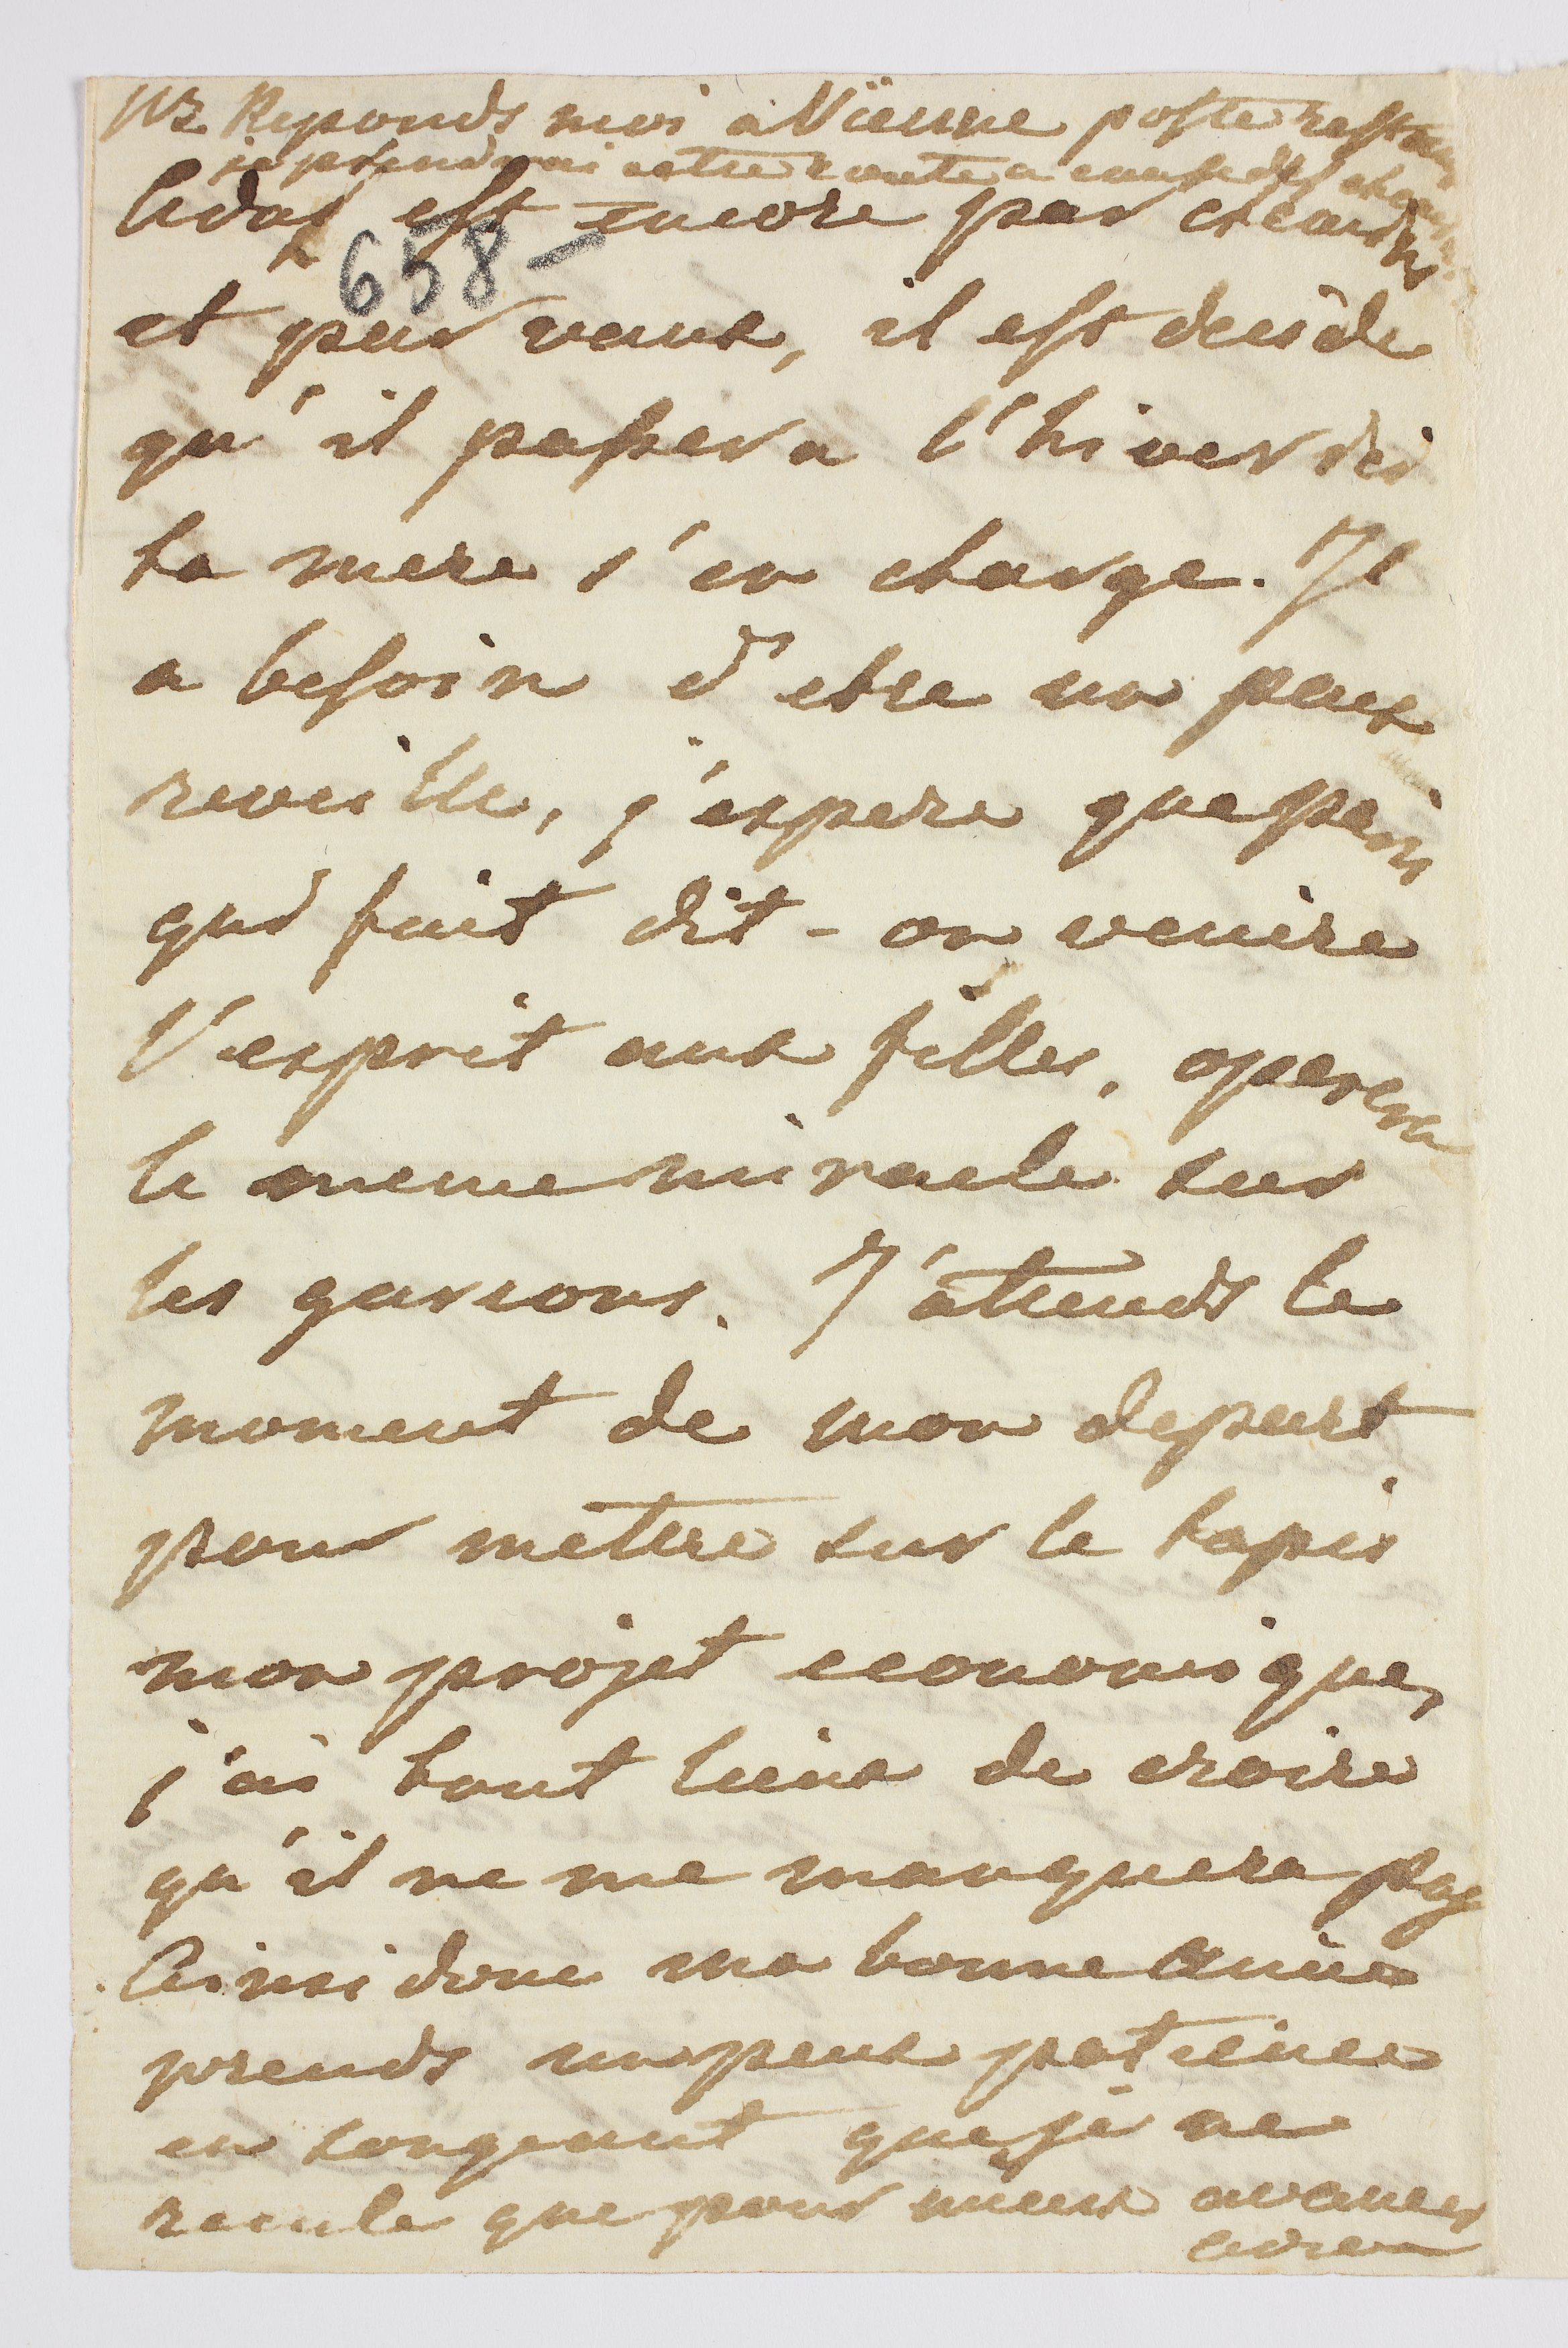 NB Reponds moi à Vïenne poste restante
je prendrai cette route a cause des
est encore par
658-
et par vaux, il est decide
qu'il passera l'hiver ici
ta mere s'en charge. Il
a besoin d'etre un peux
reveille, j'espere que Paris
qui fait dit-on venire
l'esprit aux filles, operera
le meme miracle sur
les garsons. J'attends le
moment de mon depart
pour mettre sur le tapis
mon projet economique,
j'ai tout lieux de croire
qu'il ne me manquera pas
Ainsi donc ma bonne Amie
prends un peux patience
en songeant que je ne
recule que pour mieux avancer
adieu